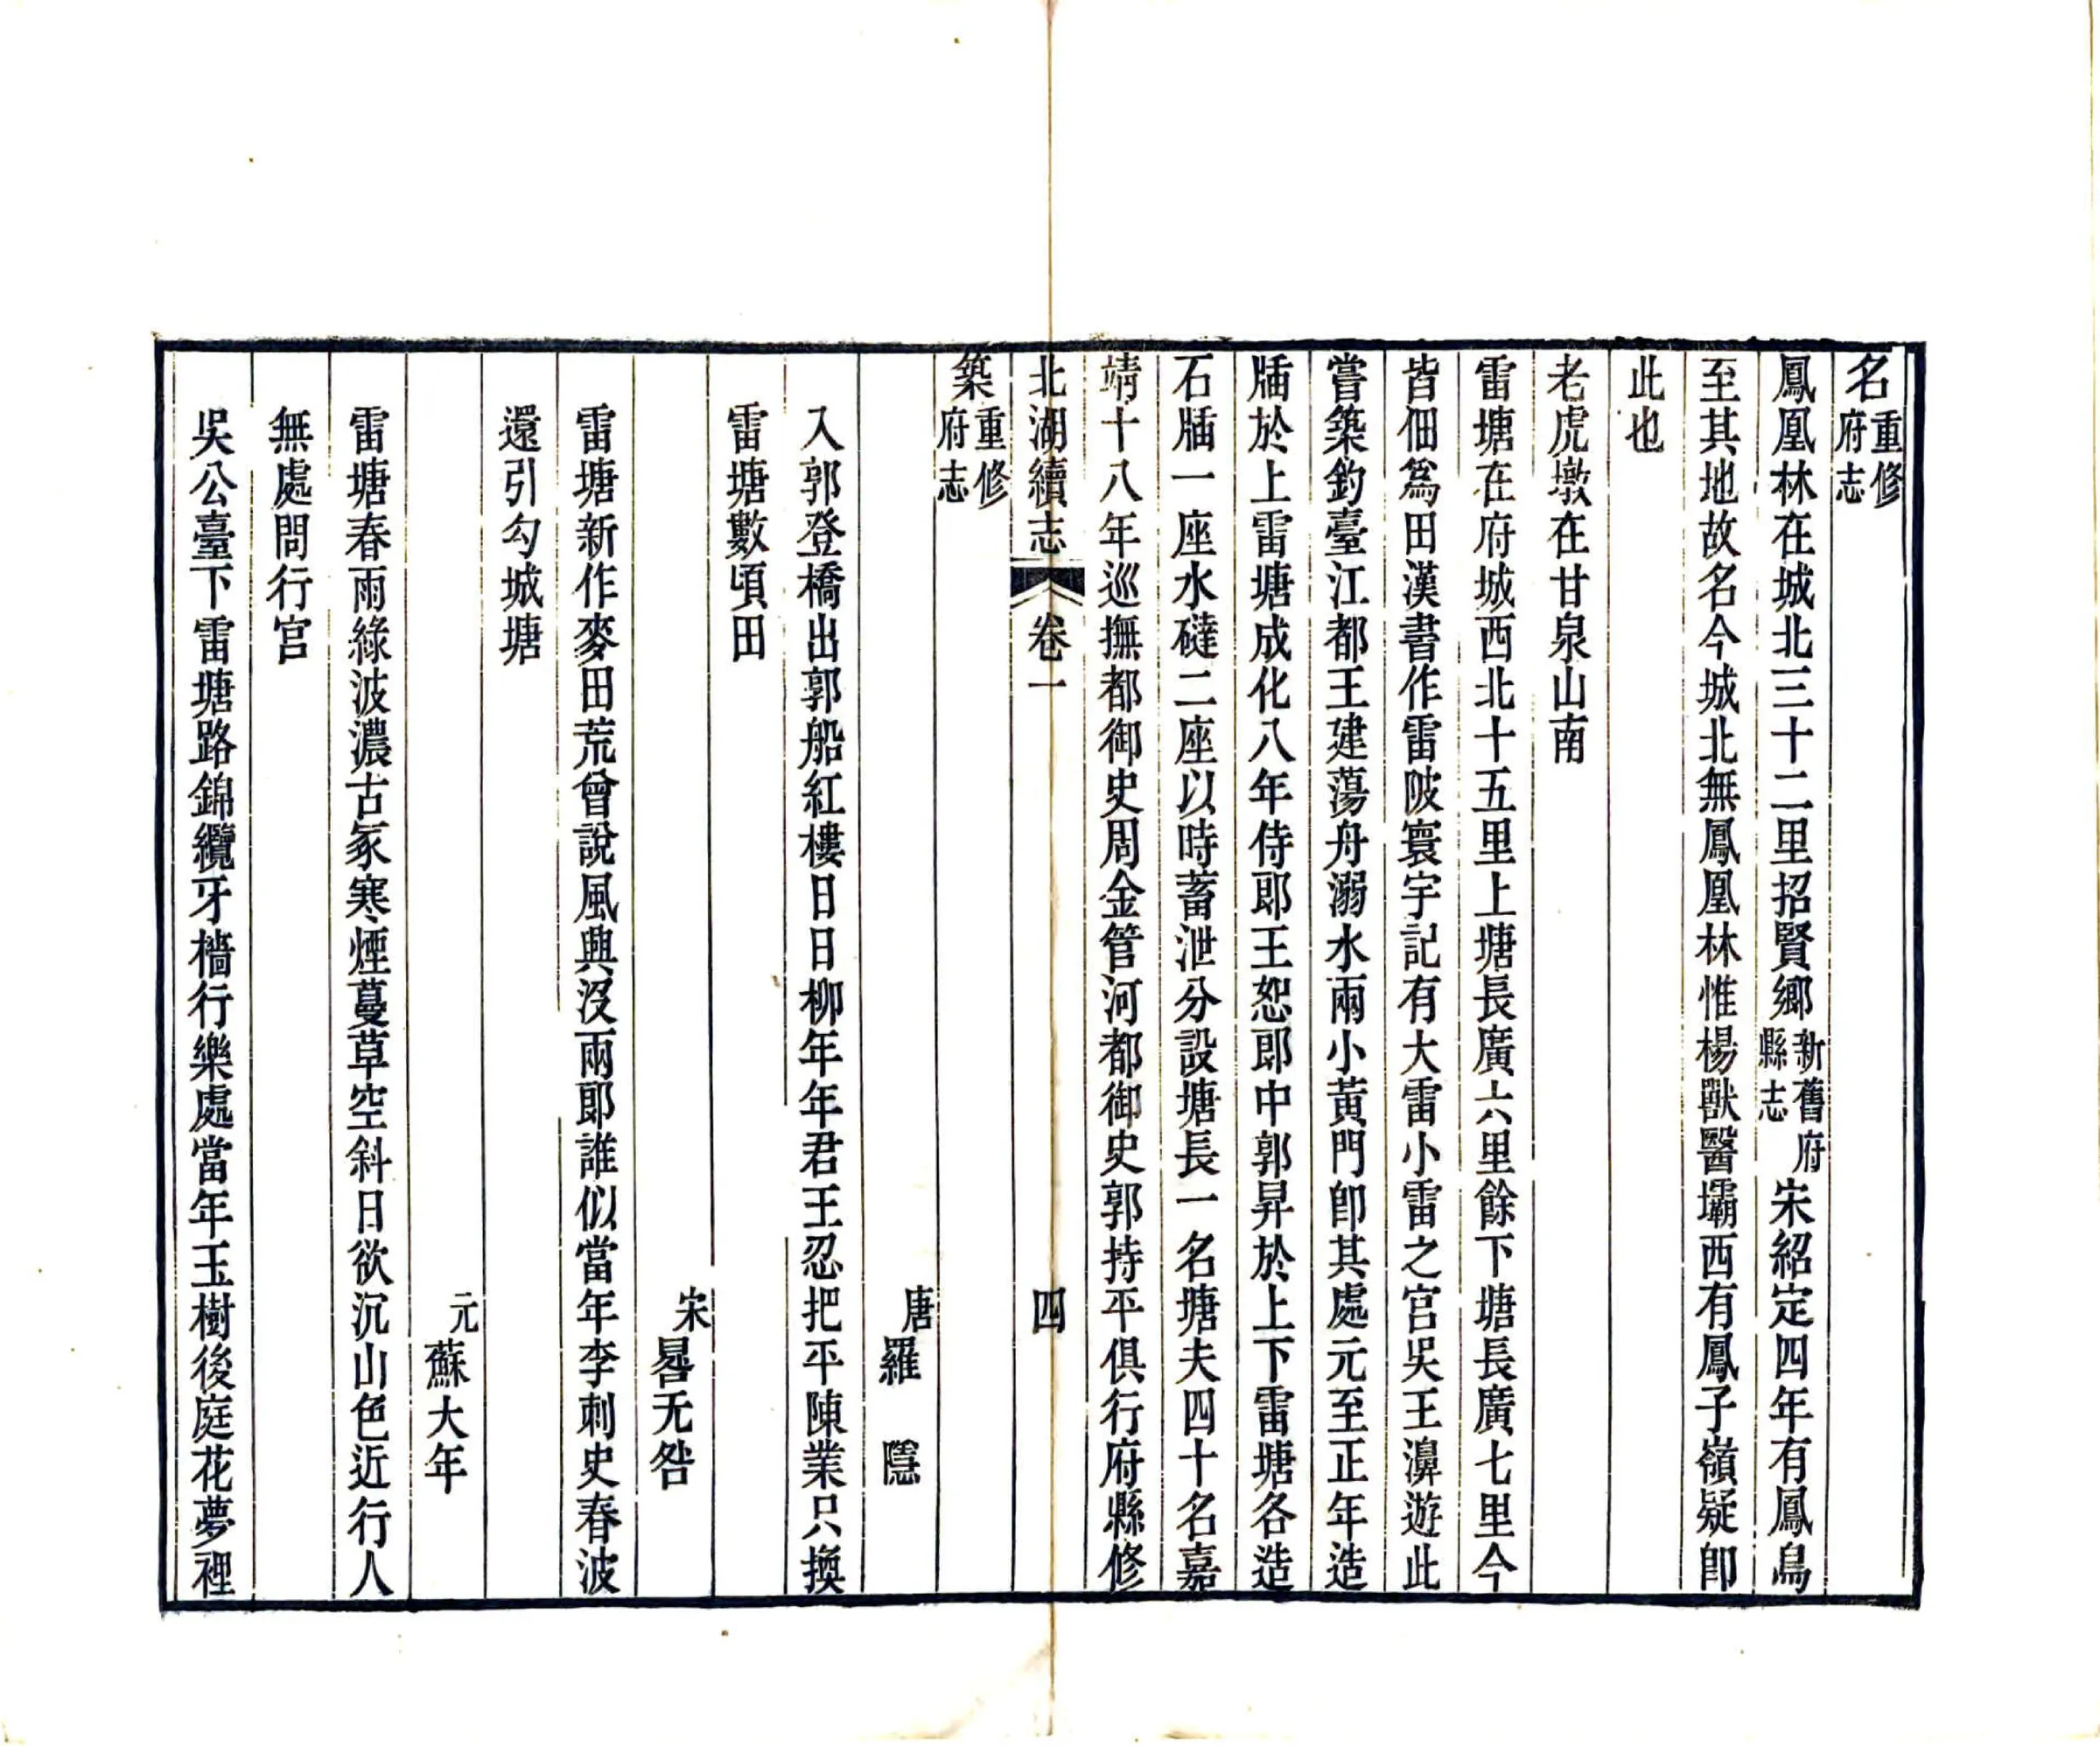 名重修府志
鳳凰林在城北三十二里招賢鄉新舊府縣志宋紹定四年有鳳鳥
至其地故名今城北無鳳凰林惟楊獸醫壩西有鳳子嶺疑卽
此也
老虎墩在甘泉山南
雷塘在府城西北十五里上塘長廣六里餘下塘長廣七里今
皆佃爲田漢書作雷陂寰宇記有大雷小雷之宫吳王濞遊此
嘗築釣臺江都王建蕩舟溺水兩小黃門卽其處元至正年造
牐於上雷塘成化八年侍郎王恕郎中郭昇於上下雷塘各造
石牐一座水䃮二座以時蓄泄分設塘長一名塘夫四十名嘉
靖十八年巡撫都御史周金管河都御史郭持平俱行府縣修
北湖續志 卷一 四
築重修府志
唐羅 隱
入郭登橋出郭船紅樓日日柳年年君王忍把平陳業只換
雷塘數頃田
宋晷无咎
雷塘新作麥田荒曾說風興沒兩郎誰似當年李刺史春波
還引勾城塘
元蘇大年
雷塘春雨綠波濃古冢寒煙蔓草空斜日欲沉山色近行人
無處問行宫
吳公臺下雷塘路錦纜牙檣行樂處當年玉樹後庭花夢裡